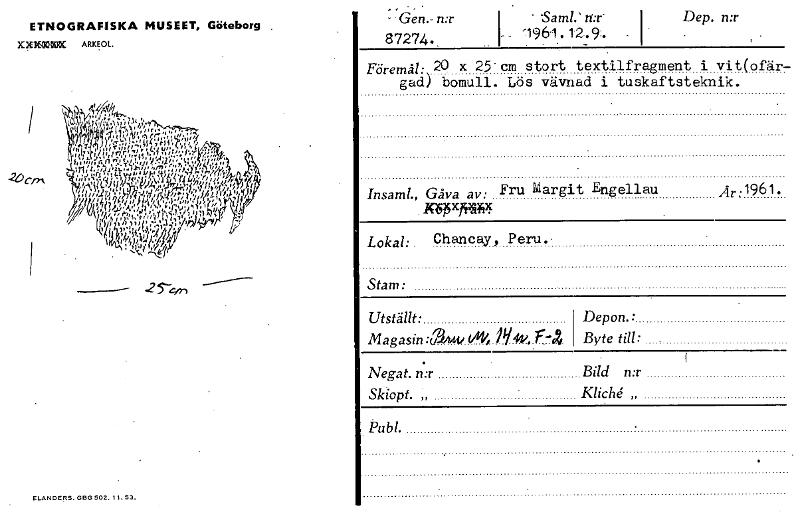 ETNOGRAFISKA MUSEET, Göteborg
XXXXXX ARKEOL.
20 cm
25 cm
ELANDERS. GBG 502. 11. 53.
Gen. n:r Saml. n:r Dep. n:r
87274. 1961.12.9.
Föremål: 20 x 25 cm stort textilfragment i vit(ofär-
gad) bomull. Lös vävnad i tuskaftsteknik.
Insaml., Gåva av: Fru Margit Engellau År: 1961.
Köp från:
Lokal: Chancay, Peru.
Stam:
Utställt: Depon.:
Magasin: Peru M. 14 n. F-2 Byte till:
Negat. n:r Bild n:r
Skiopt. „ Kliché „
Publ.